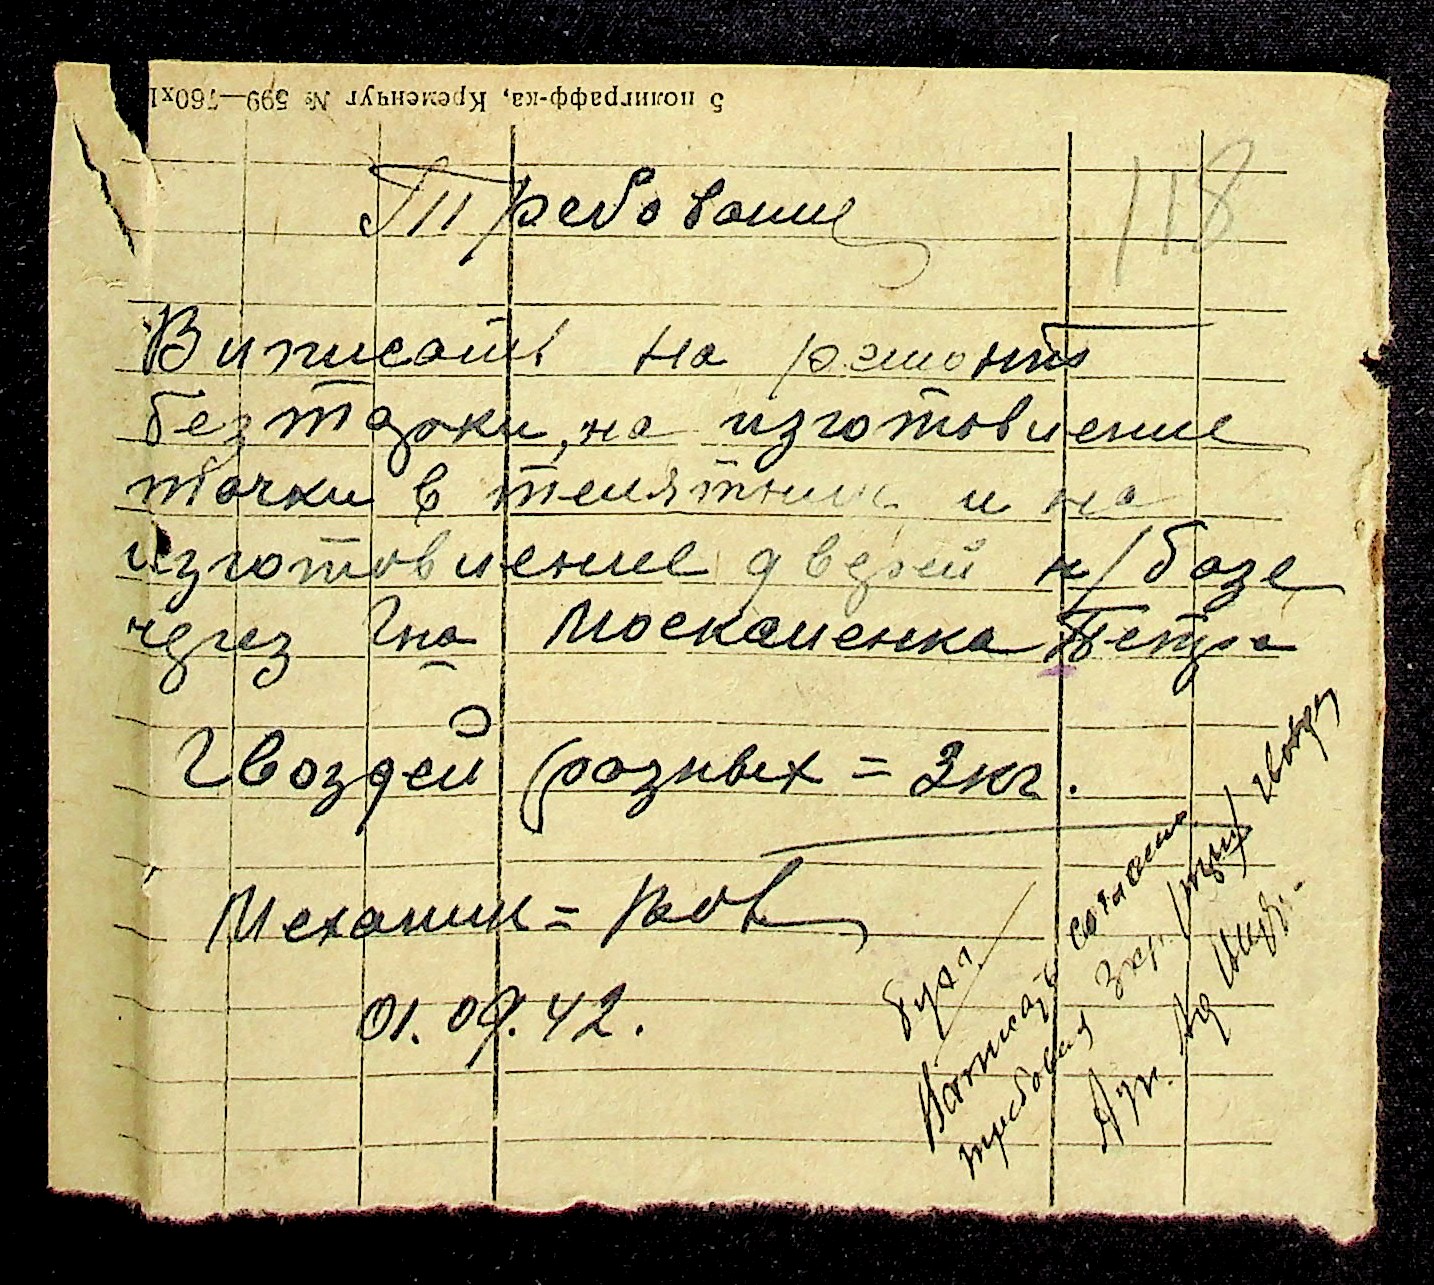 5 полиграфф-ка, Кременчуг № 599—760х1
118
Требование
Виписать на ремонт
безтарки, на изготовление
тачки в телятник и на
изготовление дверей к/базе
через гна Москаленка Петра
Гвоздей разных = 3 кг.
Механик =
01.09.42.
Бухг.
Выписать согласно
требования 3 кг. гвоздей